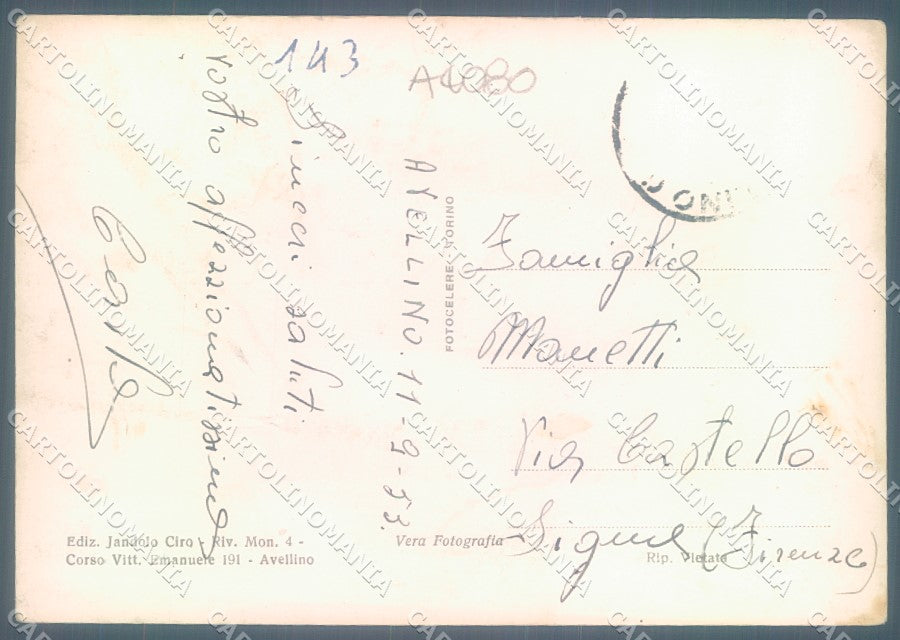 143
A4080
AVELLINO. 11-9-53.
Sinceri saluti
vostro affezionatissimo
Carlo
FOTOCELERE - TORINO
Famiglia
Manetti
Via Castello
Signa (Firenze)
Ediz. Jandolo Ciro - Riv. Mon. 4 -
Corso Vitt. Emanuele 191 - Avellino
Vera Fotografia
Rip. Vietata
CARTOLINOMANIA